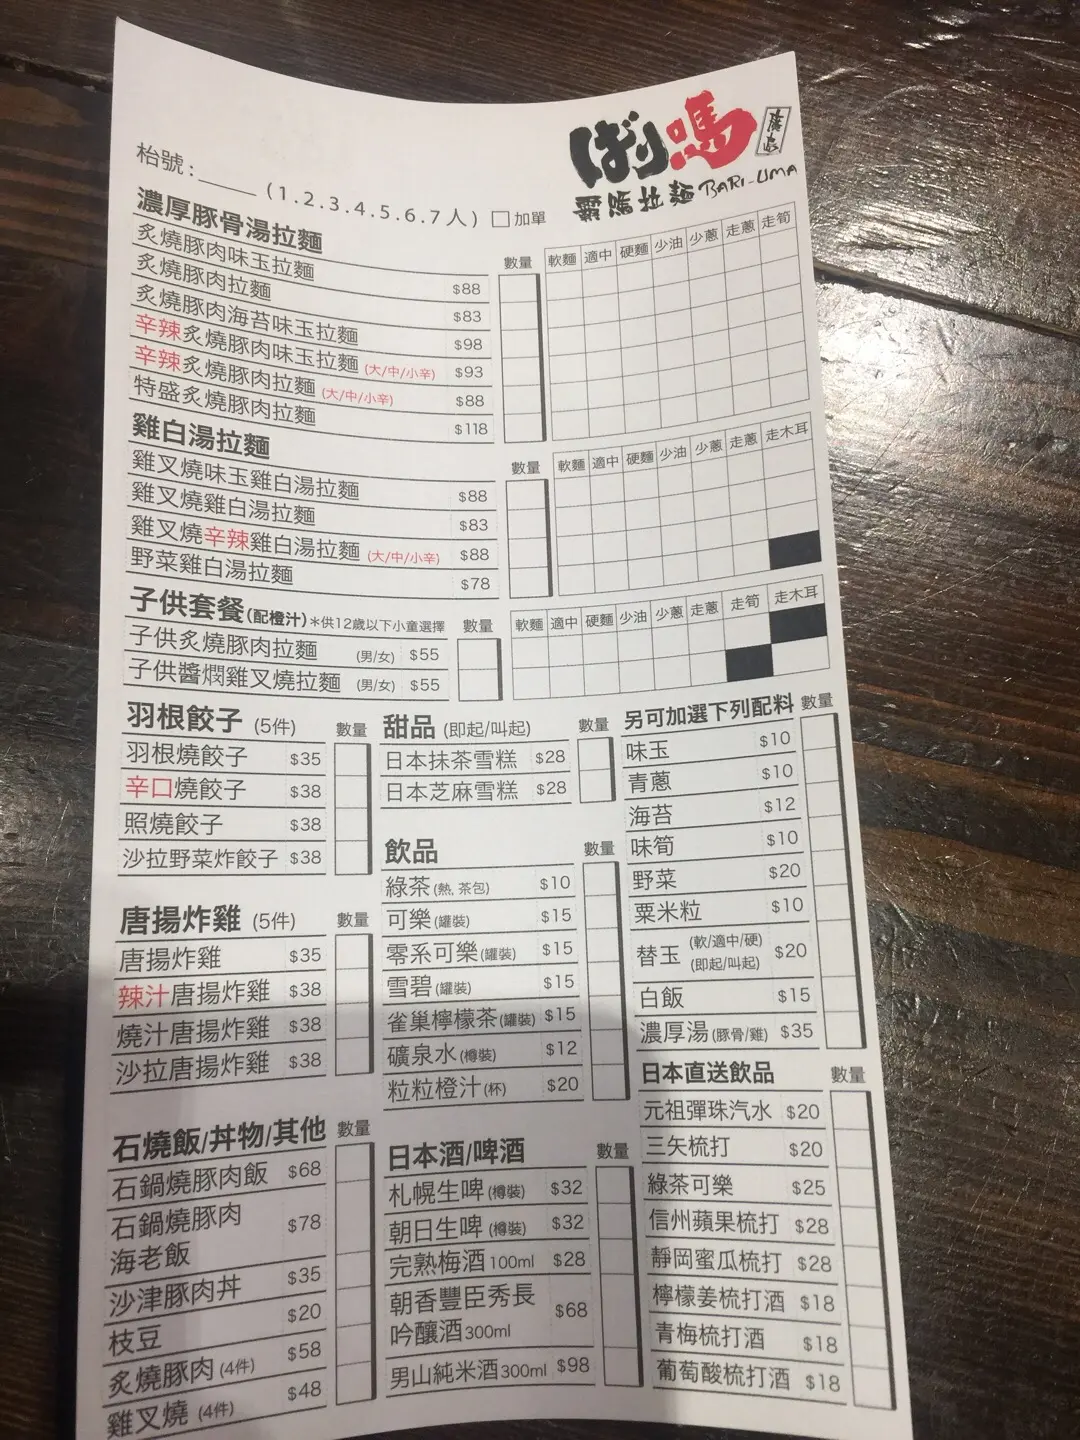 ばり嗎
廣島
霸嗎拉麵 BARI-UMA
枱號:_____ (1.2.3.4.5.6.7人) □加單
濃厚豚骨湯拉麵 數量 軟麵 適中 硬麵 少油 少蔥 走蔥 走筍
炙燒豚肉味玉拉麵 $88
炙燒豚肉拉麵 $83
炙燒豚肉海苔味玉拉麵 $98
辛辣炙燒豚肉味玉拉麵 (大/中/小辛) $93
辛辣炙燒豚肉拉麵 (大/中/小辛) $88
特盛炙燒豚肉拉麵 $118
雞白湯拉麵 數量 軟麵 適中 硬麵 少油 少蔥 走蔥 走木耳
雞叉燒味玉雞白湯拉麵 $88
雞叉燒雞白湯拉麵 $83
雞叉燒辛辣雞白湯拉麵 (大/中/小辛) $88
野菜雞白湯拉麵 $78
子供套餐(配橙汁) *供12歲以下小童選擇 數量 軟麵 適中 硬麵 少油 少蔥 走蔥 走筍 走木耳
子供炙燒豚肉拉麵 (男/女) $55
子供醬燜雞叉燒拉麵 (男/女) $55
羽根餃子 (5件) 數量
羽根燒餃子 $35
辛口燒餃子 $38
照燒餃子 $38
沙拉野菜炸餃子 $38
唐揚炸雞 (5件) 數量
唐揚炸雞 $35
辣汁唐揚炸雞 $38
燒汁唐揚炸雞 $38
沙拉唐揚炸雞 $38
石燒飯/丼物/其他 數量
石鍋燒豚肉飯 $68
石鍋燒豚肉
海老飯 $78
沙津豚肉丼 $35
枝豆 $20
炙燒豚肉 (4件) $58
雞叉燒 (4件) $48
甜品 (即起/叫起) 數量
日本抹茶雪糕 $28
日本芝麻雪糕 $28
飲品 數量
綠茶(熱, 茶包) $10
可樂(罐裝) $15
零系可樂(罐裝) $15
雪碧(罐裝) $15
雀巢檸檬茶(罐裝) $15
礦泉水(樽裝) $12
粒粒橙汁(杯) $20
日本酒/啤酒 數量
札幌生啤(樽裝) $32
朝日生啤(樽裝) $32
完熟梅酒100ml $28
朝香豐臣秀長
吟釀酒300ml $68
男山純米酒300ml $98
另可加選下列配料 數量
味玉 $10
青蔥 $10
海苔 $12
味筍 $10
野菜 $20
粟米粒 $10
替玉 (軟/適中/硬) (即起/叫起) $20
白飯 $15
濃厚湯(豚骨/雞) $35
日本直送飲品 數量
元祖彈珠汽水 $20
三矢梳打 $20
綠茶可樂 $25
信州蘋果梳打 $28
靜岡蜜瓜梳打 $28
檸檬姜梳打酒 $18
青梅梳打酒 $18
葡萄酸梳打酒 $18